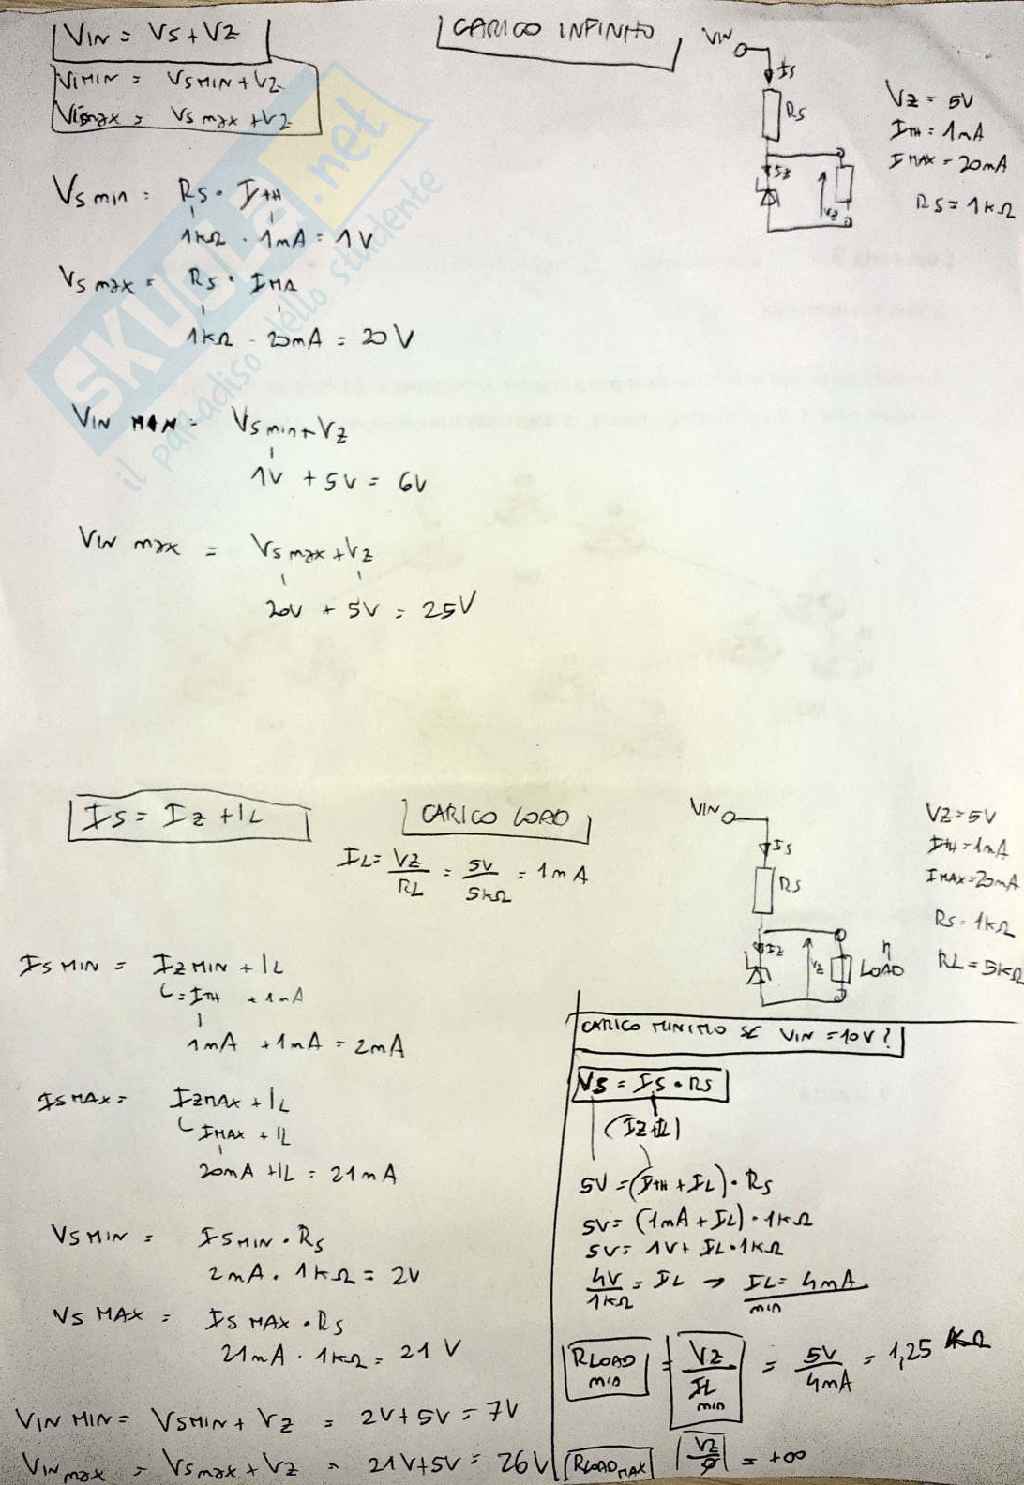 VIN = VS + VZ
VIMIN = VSMIN + VZ
VSmax + VZ
CARICO INFINITO
VIN
IS
RS
VZ = 5V
ITH = 1mA
IMAX = 20mA
RS = 1KΩ
VZ
VS min = RS · ITH
1KΩ · 1mA = 1V
VS max = RS · IMA
1KΩ - 20mA = 20V
VIN MIN = VSmin + VZ
1V + 5V = 6V
VIN max = VS max + VZ
20V + 5V = 25V
SKUOLA.net
il paradiso dello studente
IS = IZ + IL
CARICO LOAD
IL = VZ/RL = 5V/5KΩ = 1mA
VIN
IS
RS
IZ
VZ
LOAD
VZ = 5V
ITH = 1mA
IMAX = 20mA
RS = 1KΩ
RL = 5KΩ
IS MIN = IZ MIN + IL
= ITH = 1mA
1mA + 1mA = 2mA
IS MAX = IZMAX + IL
IMAX + IL
20mA + IL = 21mA
VS MIN = ISMIN · RS
2mA · 1KΩ = 2V
VS MAX = IS MAX · RS
21mA · 1KΩ = 21V
VIN MIN = VSMIN + VZ = 2V + 5V = 7V
VIN max = VS max + VZ = 21V + 5V = 26V
CARICO MINIMO SE VIN = 10V?
VS = IS · RS
(IZ+IL)
5V = (ITH + IL) · RS
5V = (1mA + IL) · 1KΩ
5V = 1V + IL · 1KΩ
4V/1KΩ = IL → IL = 4mA
min
RLOAD min = VZ/IL min = 5V/4mA = 1,25 KΩ
RLOAD MAX |VZ/0| = +∞